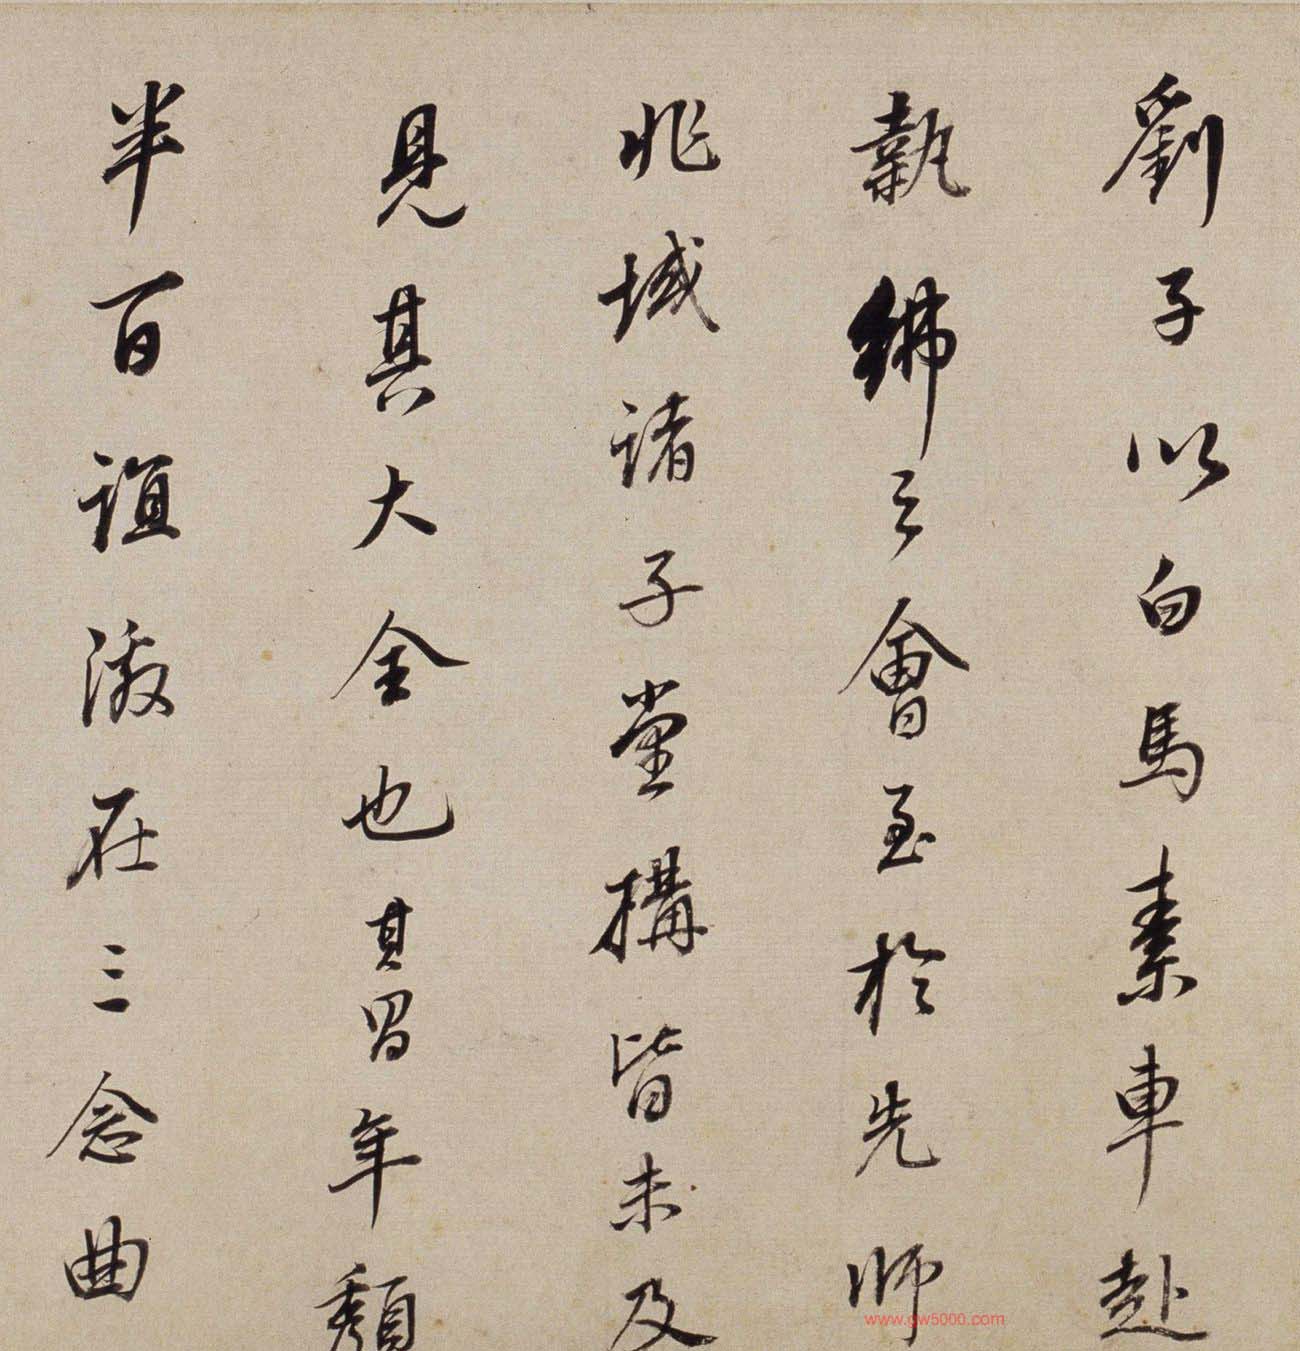 劉子以白馬素車赴
執紼之會至於先師
兆域諸子堂構皆未及
見其大全也其昌年頹
半百誼激在三念曲
www.gw5000.com